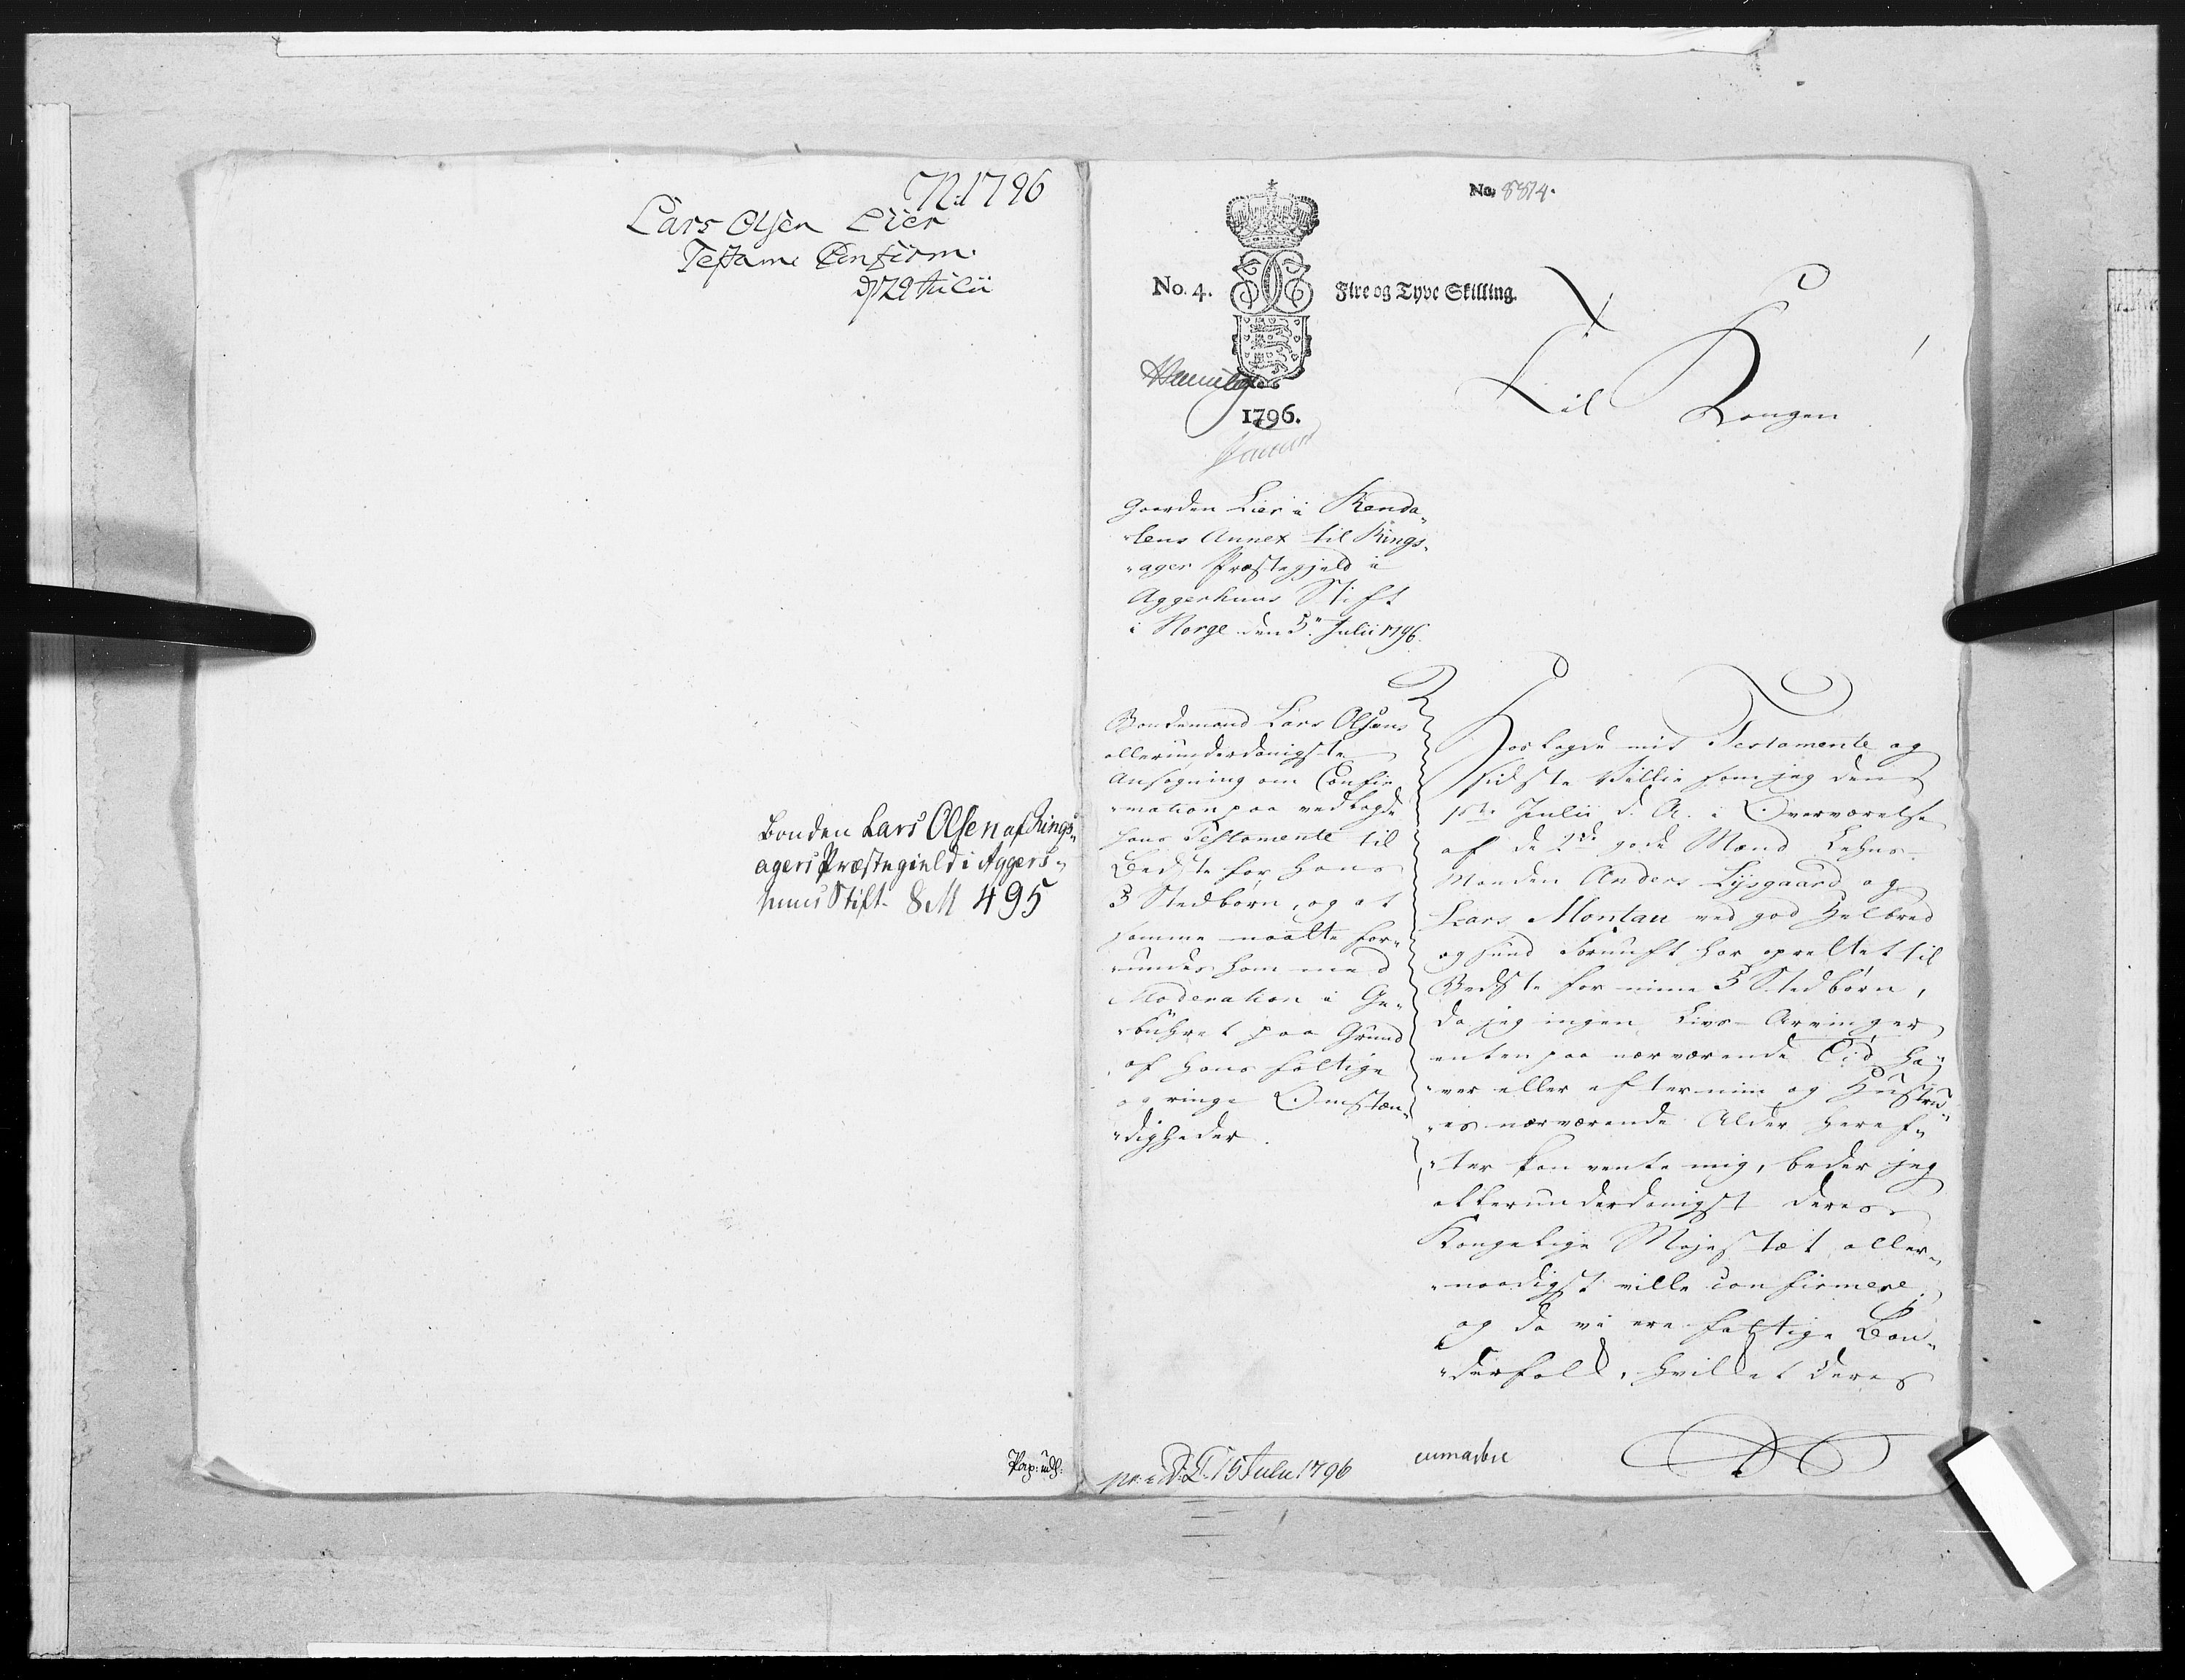 N. 1796
Lars Olsen Lier
Testame Confirm.
d 29 Julii
Bonden Lars Olsen af Rings-
agers Præstegield i Aggers-
huus Stift. 8 M 495
No. 8814.
No. 4. Fire og Tyve Skilling.
1796.
Til Kongen
Gaarden Lier i Renda-
lens Annex til Rings-
ager Præstegjeld i
Aggerhuus Stift
i Norge den 5te Julii 1796.
Bondemand Lars Olsens
allerunderdanigste
Ansøgning om Confir-
mation paa vedlagde
hans Testamente til
Bedste for hans
3 Stedbørn, og at
samme maatte for-
undes ham med
Moderation i Ge-
bühret paa Grund
af hans fattige
og ringe Omstæn-
digheder.
Hoslagde mit Testamente og
sidste Villie som jeg den
1ste Julii d. A. i Overværelse
af de 2de gode Mænd Lehns-
Manden Anders Lysgaard og
Lars Montau ved god Helbred
og sund Fornuft har oprettet til
Bedste for mine 3 Stedbørn,
da jeg ingen Livs-Arvinger
enten paa nærværende Tid ha-
ver eller efter min og Hustru-
es nærværende Alder heref-
ter kan vente mig, beder jeg
allerunderdanigst Deres
Kongelige Majestæt aller-
naadigst ville confirmere,
og da vi ere fattige Bøn-
derfolk, hvilket Deres
15 Julii 1796